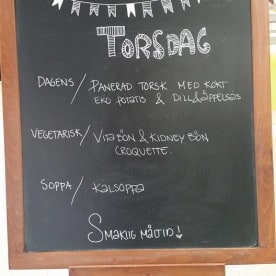 TORSDAG
DAGENS / PANERAD TORSK MED KOKT
EKO POTATIS & DILL&ÄPPELSÅS
VEGETARISK / VITA BÖN & KIDNEY BÖN
CROQUETTE.
SOPPA / KÅLSOPPA
SMAKLIG MÅLTID!